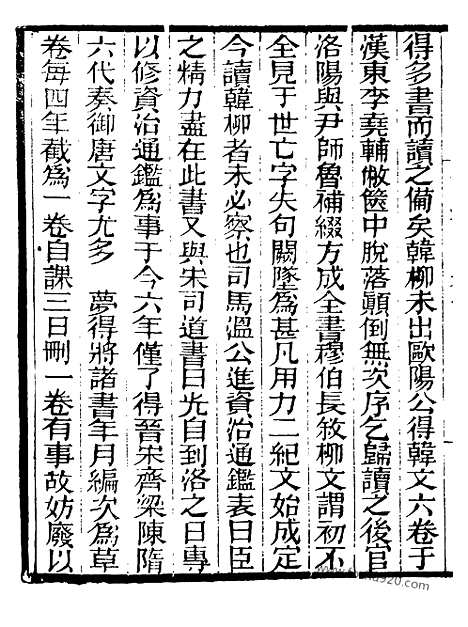 得多書而讀之備矣韓柳未出歐陽公得韓文六卷于
漢東李堯輔敝篋中脫落顛倒無次序乞歸讀之後官
洛陽與尹師魯補綴方成全書穆伯長敘柳文謂初不
全見于世亡字失句闕墜爲甚凡用力二紀文始成定
今讀韓柳者未必察也司馬溫公進資治通鑑表曰臣
之精力盡在此書又與宋司道書曰光自到洛之日專
以修資治通鑑爲事于今六年僅了得晉宋齊梁陳隋
六代奏御唐文字尤多 夢得將諸書年月編次爲草
卷每四年截爲一卷自課三日刪一卷有事故妨廢以